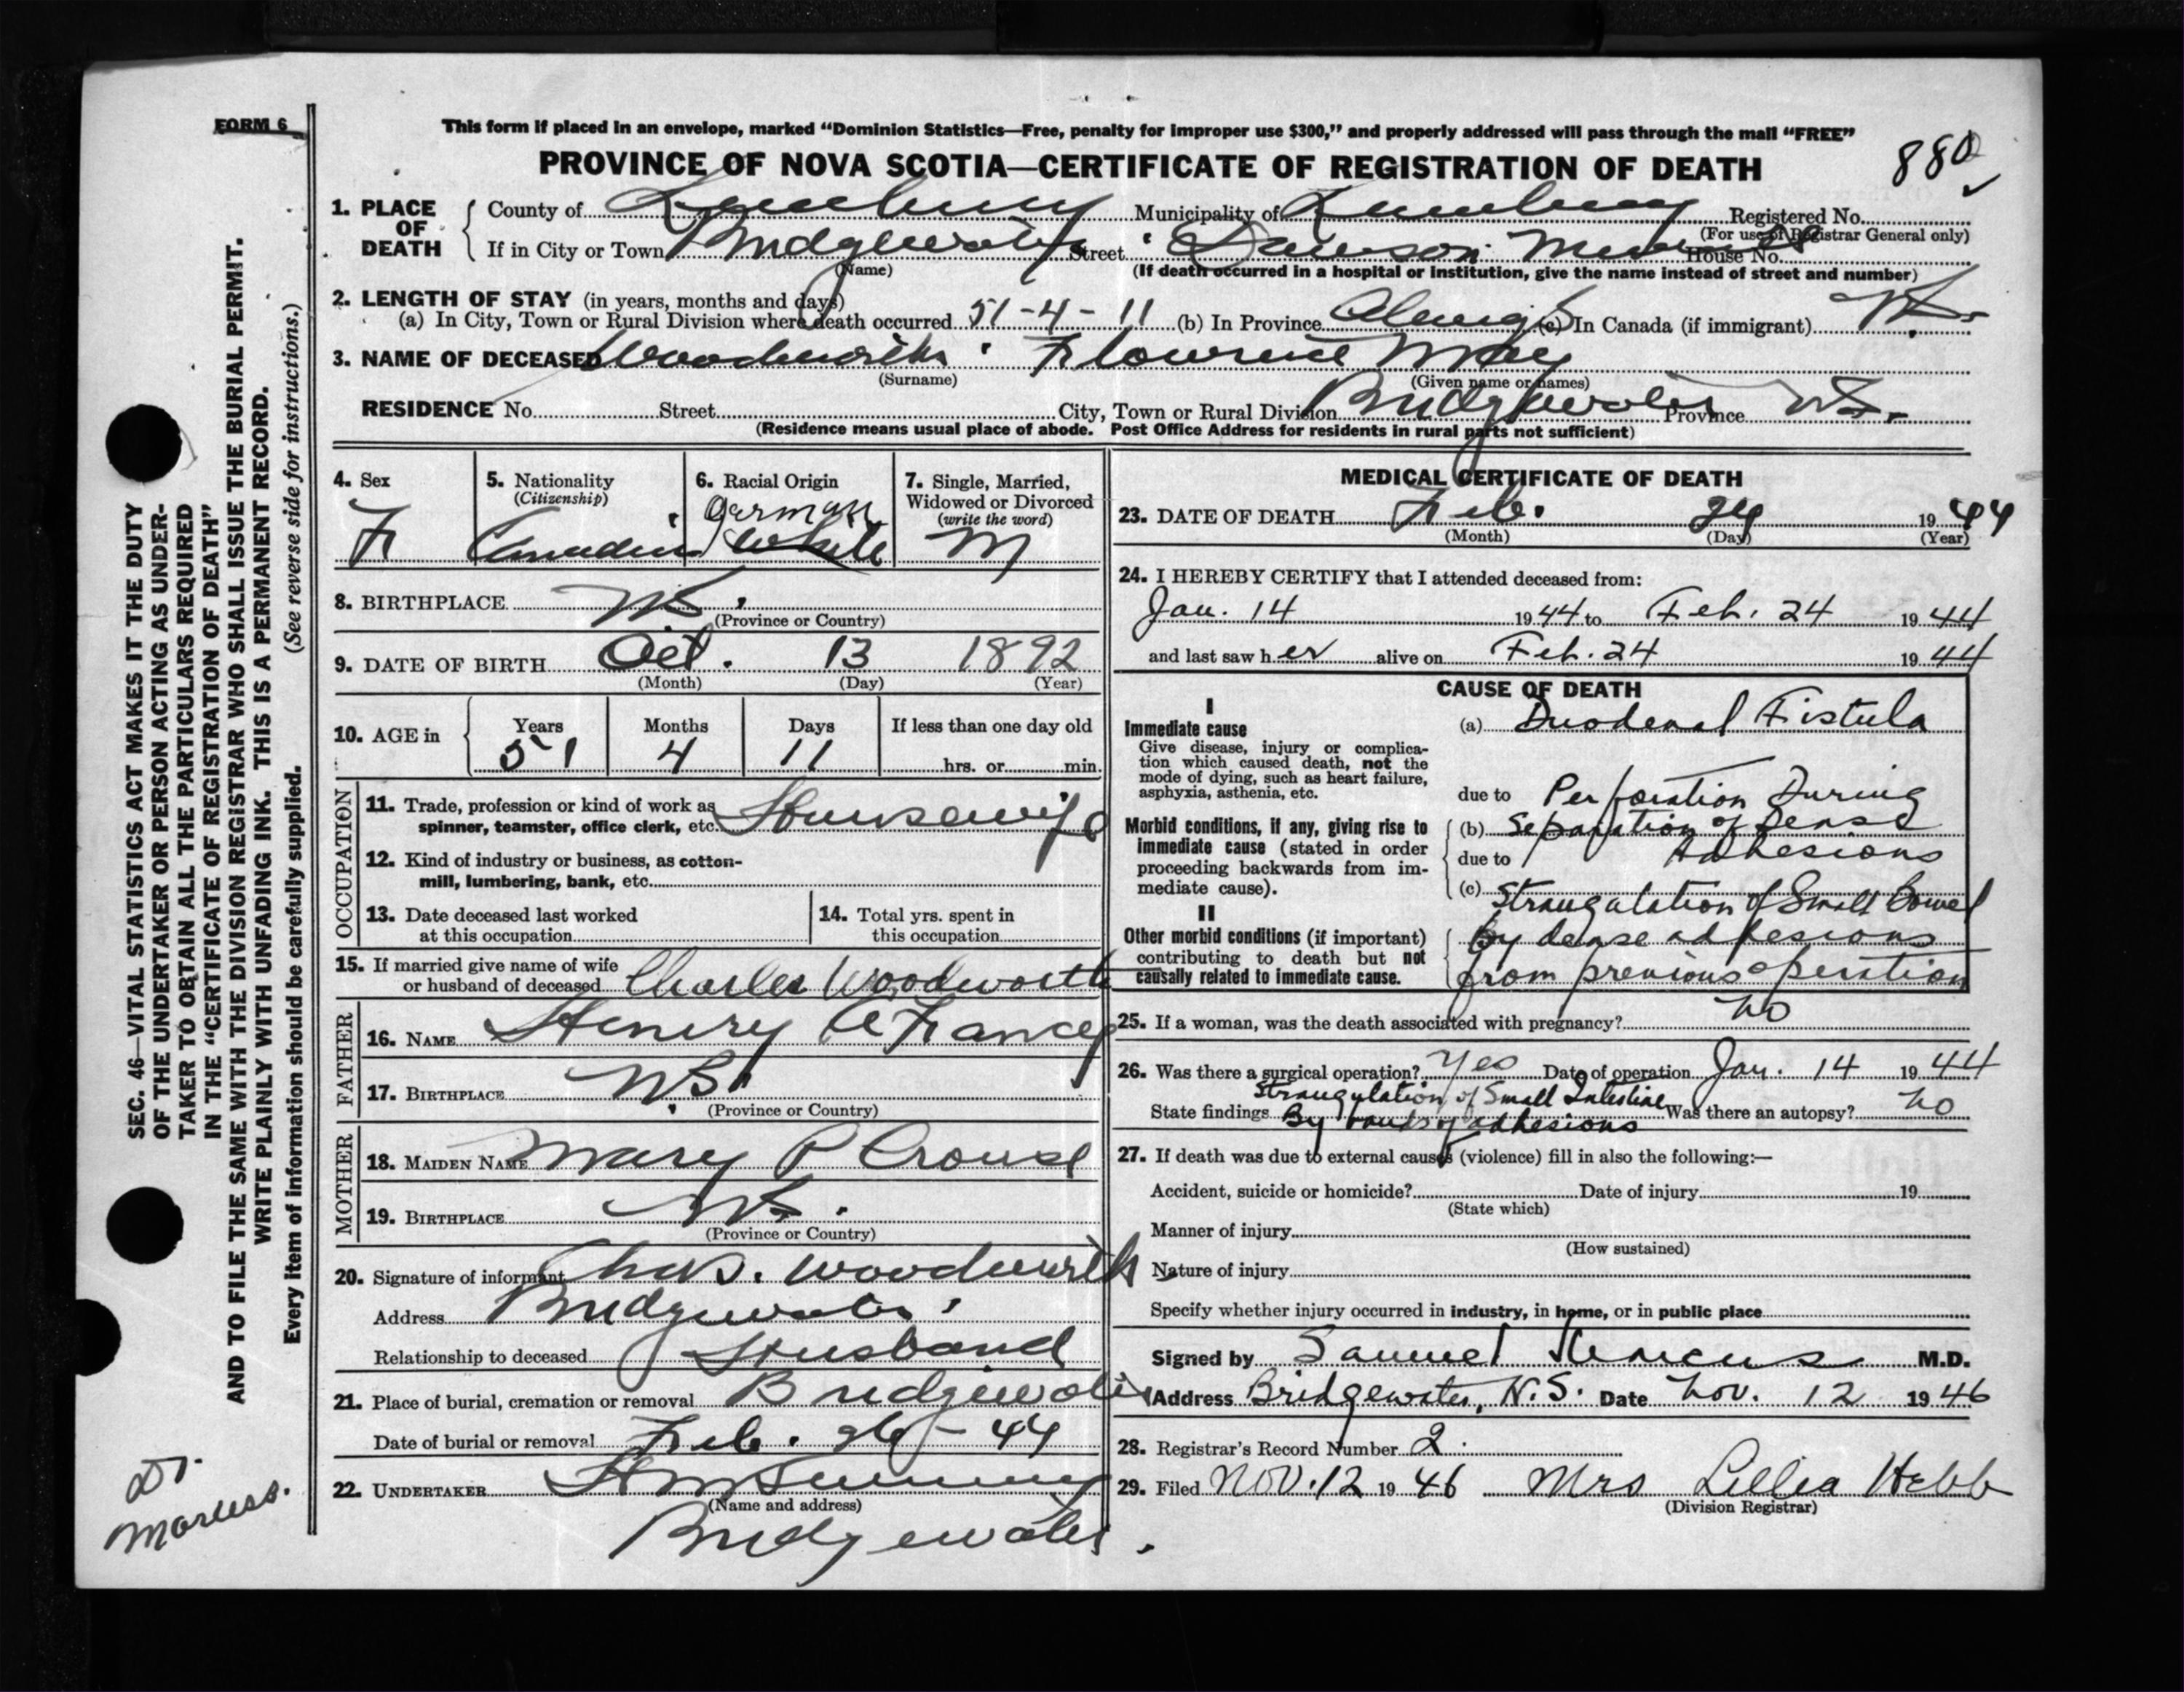 FORM 6
This form if placed in an envelope, marked "Dominion Statistics—Free, penalty for improper use $300," and properly addressed will pass through the mail "FREE"
PROVINCE OF NOVA SCOTIA—CERTIFICATE OF REGISTRATION OF DEATH 880
1. PLACE OF DEATH County of Lunenburg Municipality of Lunenburg Registered No.
(For use of Registrar General only)
If in City or Town Bridgewater Street Dawson House No.
(Name) (If death occurred in a hospital or institution, give the name instead of street and number)
2. LENGTH OF STAY (in years, months and days)
(a) In City, Town or Rural Division where death occurred 51-4-11 (b) In Province Always (c) In Canada (if immigrant)
3. NAME OF DECEASED Woodworth Flowrence May
(Surname) (Given name or names)
RESIDENCE No. Street City, Town or Rural Division Bridgewater Province N.S.
(Residence means usual place of abode. Post Office Address for residents in rural parts not sufficient)
4. Sex F
5. Nationality (Citizenship) Canadian
6. Racial Origin German White
7. Single, Married, Widowed or Divorced (write the word) M
8. BIRTHPLACE N.S.
(Province or Country)
9. DATE OF BIRTH Oct. 13 1892
(Month) (Day) (Year)
10. AGE in Years Months Days If less than one day old
51 4 11 hrs. or min.
OCCUPATION
11. Trade, profession or kind of work as spinner, teamster, office clerk, etc. Housewife
12. Kind of industry or business, as cotton-mill, lumbering, bank, etc.
13. Date deceased last worked at this occupation
14. Total yrs. spent in this occupation
15. If married give name of wife or husband of deceased Charles Woodworth
FATHER
16. NAME Henry
17. BIRTHPLACE N.S.
(Province or Country)
MOTHER
18. MAIDEN NAME Mary P Crouse
19. BIRTHPLACE N.S.
(Province or Country)
20. Signature of informant Chas. Woodworth
Address Bridgewater
Relationship to deceased Husband
21. Place of burial, cremation or removal Bridgewater
Date of burial or removal Feb. 26 - 44
22. UNDERTAKER
(Name and address)
Bridgewater.
MEDICAL CERTIFICATE OF DEATH
23. DATE OF DEATH Feb. 24 1944
(Month) (Day) (Year)
24. I HEREBY CERTIFY that I attended deceased from:
Jan. 14 1944 to Feb. 24 1944
and last saw her alive on Feb. 24 1944
CAUSE OF DEATH
I
Immediate cause (a) Duodenal Fistula
Give disease, injury or complication which caused death, not the mode of dying, such as heart failure, asphyxia, asthenia, etc.
due to Perforation During
Morbid conditions, if any, giving rise to immediate cause (stated in order proceeding backwards from immediate cause).
(b) Separation of Dense
due to Adhesions
(c) Strangulation of Small Bowel
II
Other morbid conditions (if important) contributing to death but not causally related to immediate cause.
by dense adhesions
from previous operation
25. If a woman, was the death associated with pregnancy? no
26. Was there a surgical operation? Yes Date of operation Jan. 14 1944
State findings Strangulation of Small Intestine By bands of adhesions Was there an autopsy? no
27. If death was due to external causes (violence) fill in also the following:—
Accident, suicide or homicide? Date of injury 19
(State which)
Manner of injury
(How sustained)
Nature of injury
Specify whether injury occurred in industry, in home, or in public place
Signed by Samuel Marcus M.D.
Address Bridgewater, N.S. Date Nov. 12 1946
28. Registrar's Record Number 2
29. Filed Nov. 12 1946 Mrs Lillia Hebb
(Division Registrar)
SEC. 46—VITAL STATISTICS ACT MAKES IT THE DUTY
OF THE UNDERTAKER OR PERSON ACTING AS UNDER-
TAKER TO OBTAIN ALL THE PARTICULARS REQUIRED
IN THE "CERTIFICATE OF REGISTRATION OF DEATH"
AND TO FILE THE SAME WITH THE DIVISION REGISTRAR WHO SHALL ISSUE THE BURIAL PERMIT.
WRITE PLAINLY WITH UNFADING INK. THIS IS A PERMANENT RECORD.
Every item of information should be carefully supplied. (See reverse side for instructions.)
Dr.
Marcus.